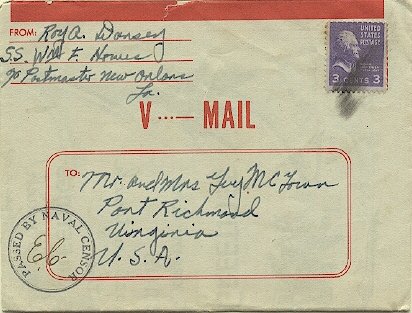 FROM: Roy A. Dorsey
S.S. Wm F. Howes
℅ Postmaster New Orleans
La.
UNITED STATES POSTAGE
3 CENTS 3
V ...— MAIL
TO: Mr. and Mrs McGown
Port Richmond
Virginia
U.S.A.
PASSED BY NAVAL CENSOR